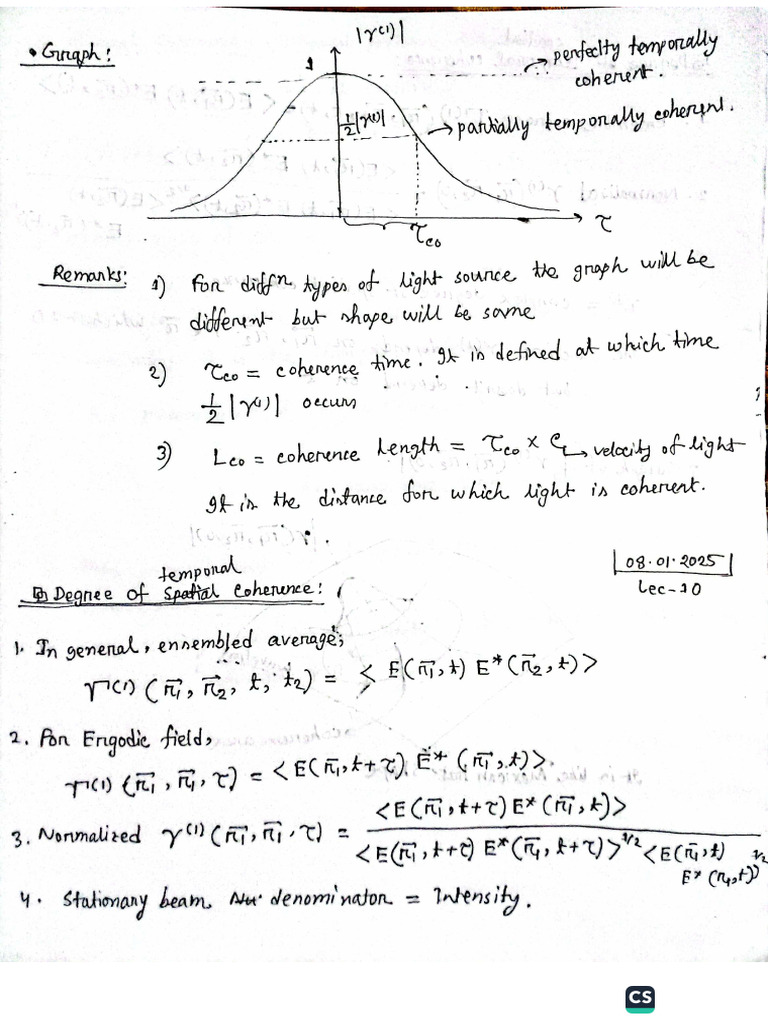 |γ⁽¹⁾|
• Graph:
1
perfectly temporally
coherent.
½|γ⁽¹⁾|
partially temporally coherent.
τ
τco
Remarks: 1) For diffn types of light source the graph will be
different but shape will be same
2) τco = coherence time. It is defined at which time
½ |γ⁽¹⁾| occurs
3) Lco = coherence length = τco × c → velocity of light
It is the distance for which light is coherent.
08.01.2025
Lec-10
temporal
Degree of Spatial Coherence:
1. In general, ensembled average;
Γ⁽¹⁾ (r⃗1, r⃗2, t, t2) = < E(r⃗1, t) E*(r⃗2, t)>
2. For Ergodic field,
Γ⁽¹⁾ (r⃗1, r⃗1, τ) = <E(r⃗1, t+τ) E* (r⃗1, t)>.
3. Normalized γ⁽¹⁾(r⃗1, r⃗1, τ) = <E(r⃗1, t+τ) E*(r⃗1, t)>
<E(r⃗1, t+τ) E*(r⃗1, t+τ)>^1/2 <E(r⃗1, t)
E*(r1, t)>^1/2
4. Stationary beam, denominator = Intensity.
CS